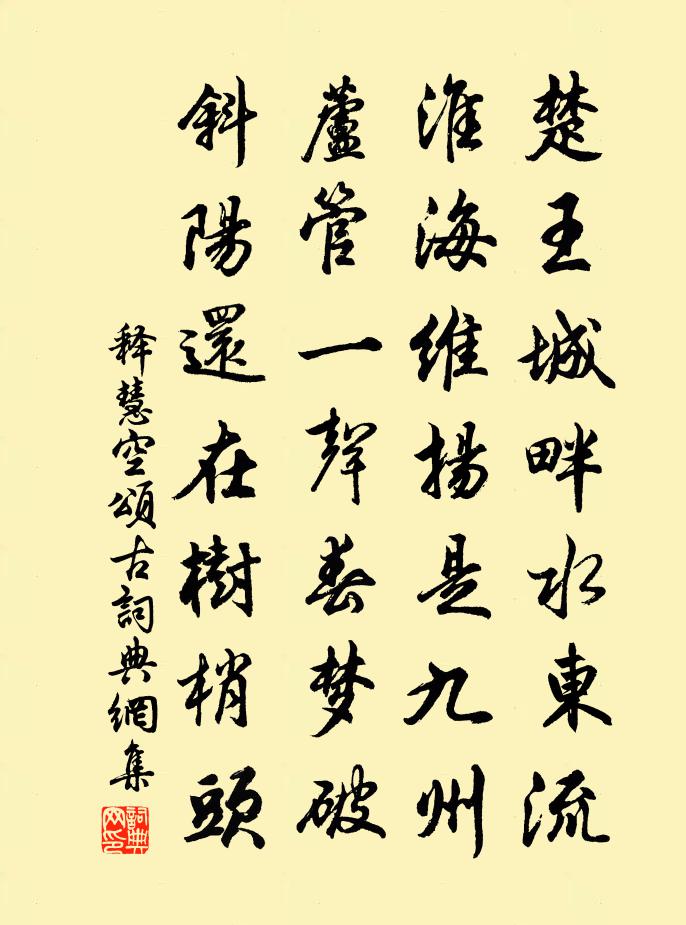 楚王城畔水東流
淮海維揚是九州
蘆管一聲春梦破
斜陽還在樹梢頭
释慧空頌古詞典網集
詞典
网印